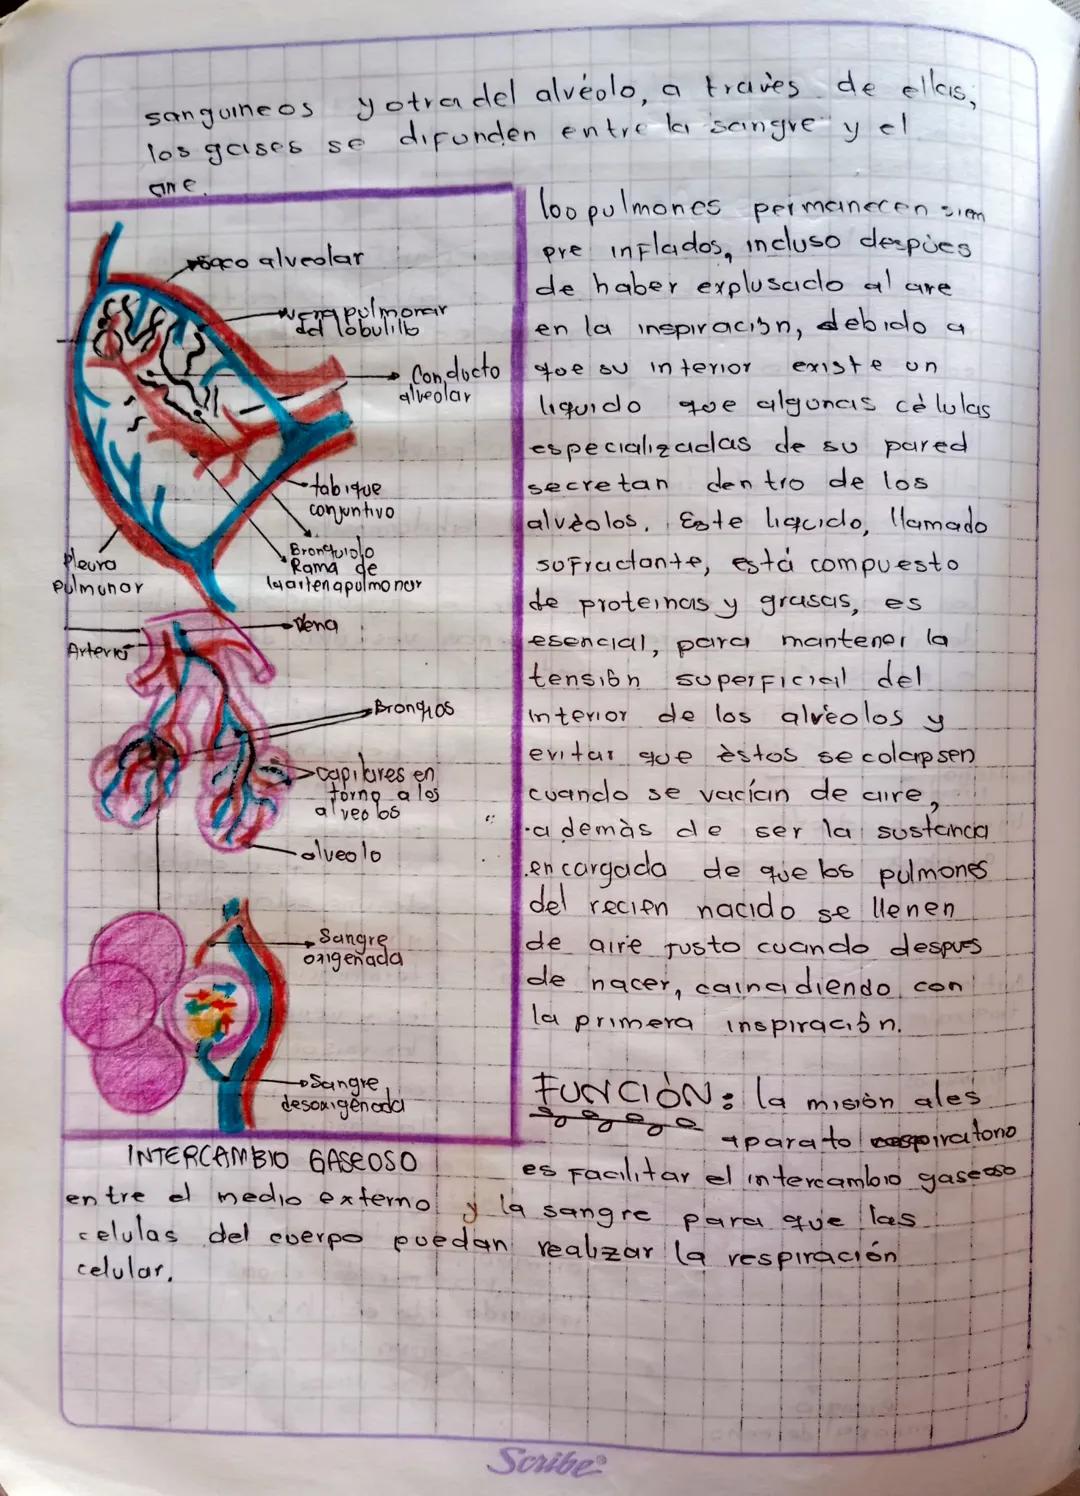 sanguineos y otra del alvéolo, a través de ellas,
los gases se difunden entre la sangre y el
aire.
saco alveolar
vena pulmonar
del lobulillo
Conducto
alveolar
tabique
conjuntivo
Bronquiolo
Rama de
la arteria pulmonar
Pleura
Pulmonar
Vena
Arteria
Bronqios
capilares en
torno a los
alveolos
alveolo
Sangre
oxigenada
Sangre
desoxigenada
INTERCAMBIO GASEOSO
los pulmones permanecen siem
pre inflados, incluso despúes
de haber explusado al aire
en la inspiración, debido a
que su interior existe un
liquido que algunas células
especializadas de su pared
secretan dentro de los
alvéolos. Este liqcido, llamado
sufractante, está compuesto
de proteinas y grasas, es
esencial, para mantener la
tensión superficial del
interior de los alvéolos y
evitar que éstos se colapsen
cuando se vacían de aire,
además de ser la sustancia
encargada de que los pulmones
del recien nacido se llenen
de aire justo cuando despues
de nacer, cainadiendo con
la primera inspiración.
FUNCIÓN: la misión ales
aparato respiratorio
es facilitar el intercambio gaseoso
entre el medio externo y la sangre para que las
celulas del cuerpo puedan realizar la respiración
celular.
Scribe®